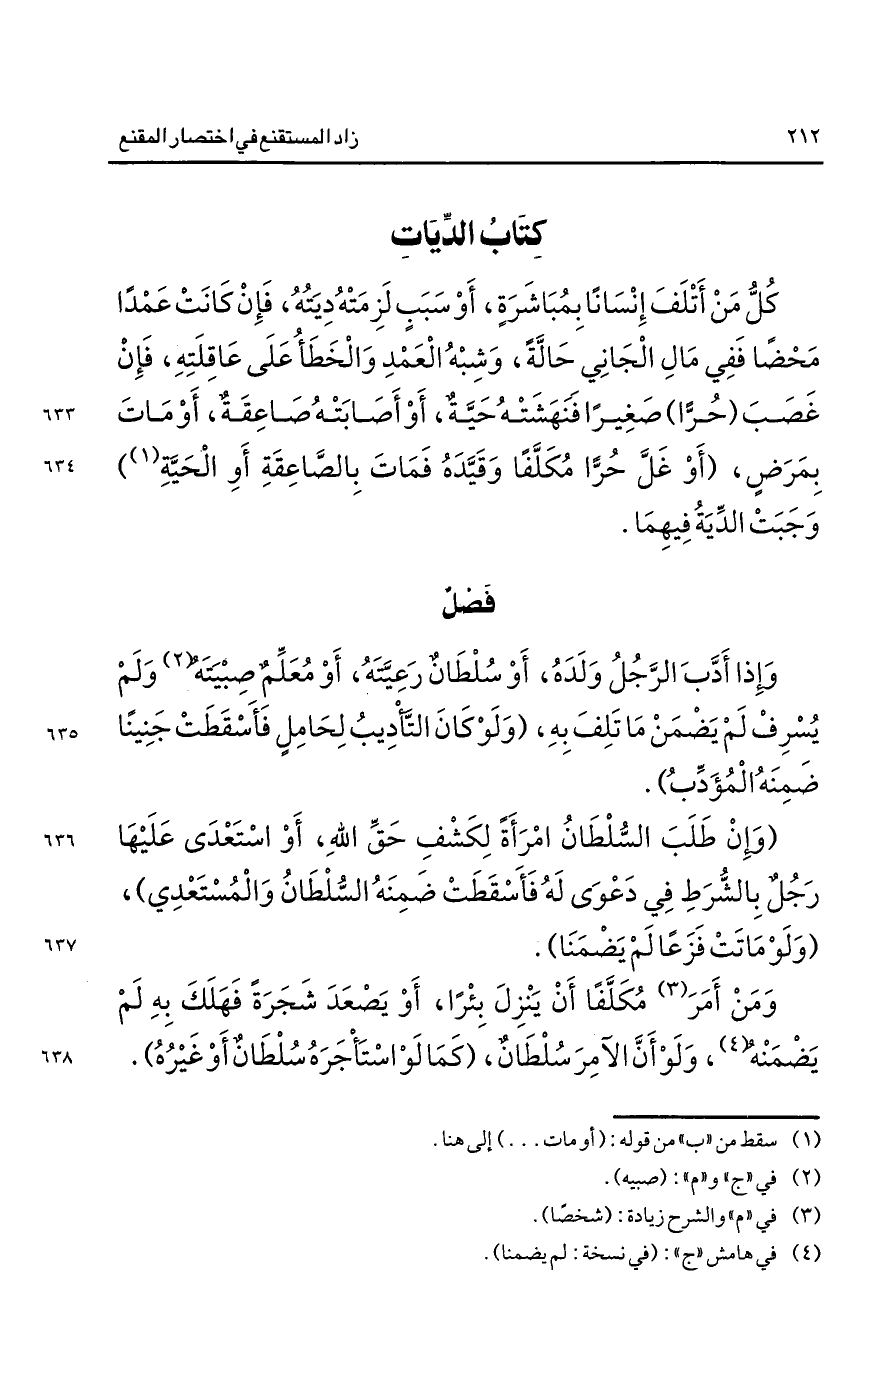 ٢١٢ زاد المستقنع في اختصار المقنع
كِتَابُ الدِّيَاتِ
كُلُّ مَنْ أَتْلَفَ إِنْسَانًا بِمُبَاشَرَةٍ، أَوْ سَبَبٍ لَزِمَتْهُ دِيَتُهُ، فَإِنْ كَانَتْ عَمْدًا
مَحْضًا فَفِي مَالِ الْجَانِي حَالَّةً، وَشِبْهُ الْعَمْدِ وَالْخَطَأُ عَلَى عَاقِلَتِهِ، فَإِنْ
غَصَبَ (حُرًّا) صَغِيرًا فَنَهَشَتْهُ حَيَّةٌ، أَوْ أَصَابَتْهُ صَاعِقَةٌ، أَوْ مَاتَ ٦٣٣
بِمَرَضٍ، (أَوْ غَلَّ حُرًّا مُكَلَّفًا وَقَيَّدَهُ فَمَاتَ بِالصَّاعِقَةِ أَوِ الْحَيَّةِ(١)) ٦٣٤
وَجَبَتْ الدِّيَةُ فِيهِمَا.
فَصْلٌ
وَإِذا أَدَّبَ الرَّجُلُ وَلَدَهُ، أَوْ سُلْطَانٌ رَعِيَّتَهُ، أَوْ مُعَلِّمٌ صِبْيَتَهُ(٢) وَلَمْ
يُسْرِفْ لَمْ يَضْمَنْ مَا تَلِفَ بِهِ، (وَلَوْ كَانَ التَّأْدِيبُ لِحَامِلٍ فَأَسْقَطَتْ جَنِينًا ٦٣٥
ضَمِنَهُ الْمُؤَدِّبُ).
(وَإِنْ طَلَبَ السُّلْطَانُ امْرَأَةً لِكَشْفِ حَقِّ اللهِ، أَوْ اسْتَعْدَى عَلَيْهَا ٦٣٦
رَجُلٌ بِالشُّرَطِ فِي دَعْوَى لَهُ فَأَسْقَطَتْ ضَمِنَهُ السُّلْطَانُ وَالْمُسْتَعْدِي)،
(وَلَوْ مَاتَتْ فَزَعًا لَمْ يَضْمَنَا). ٦٣٧
وَمَنْ أَمَرَ(٣) مُكَلَّفًا أَنْ يَنْزِلَ بِئْرًا، أَوْ يَصْعَدَ شَجَرَةً فَهَلَكَ بِهِ لَمْ
يَضْمَنْهُ(٤)، وَلَوْ أَنَّ الآمِرَ سُلْطَانٌ، (كَمَا لَوْ اسْتَأْجَرَهُ سُلْطَانٌ أَوْ غَيْرُهُ). ٦٣٨
(١) سقط من «ب» من قوله: (أو مات...) إلى هنا.
(٢) في «ج» و«م»: (صبيه).
(٣) في «م» والشرح زيادة: (شخصًا).
(٤) في هامش «ج»: (في نسخة: لم يضمنا).